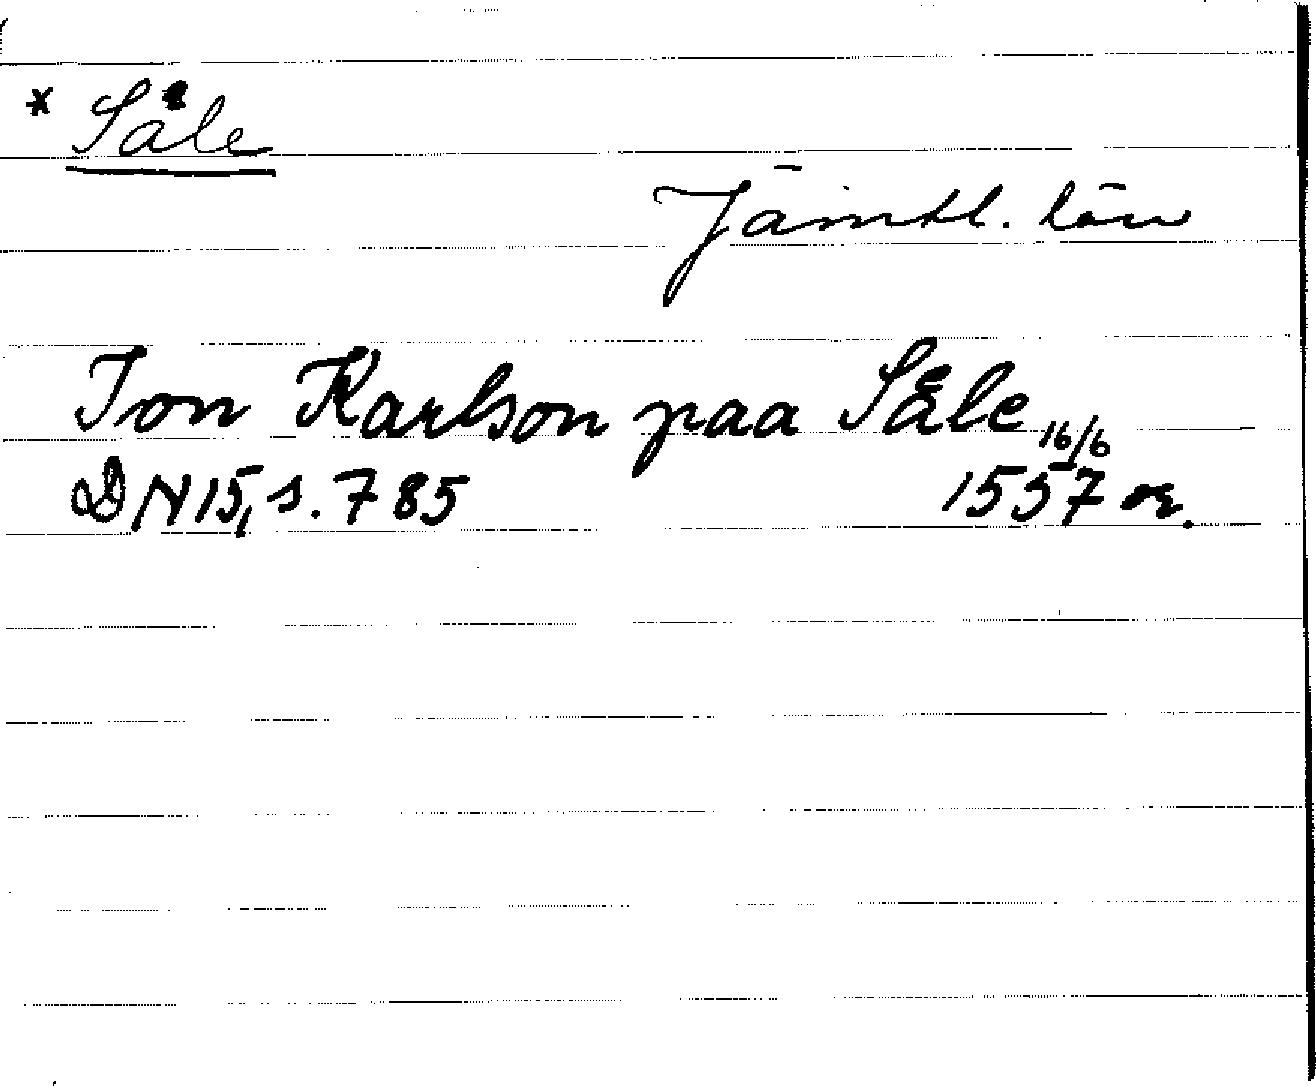 * Såle
Jämtl. län
Jon Karlson paa Såle 16/6
DN 15, s. 785 1557 or.